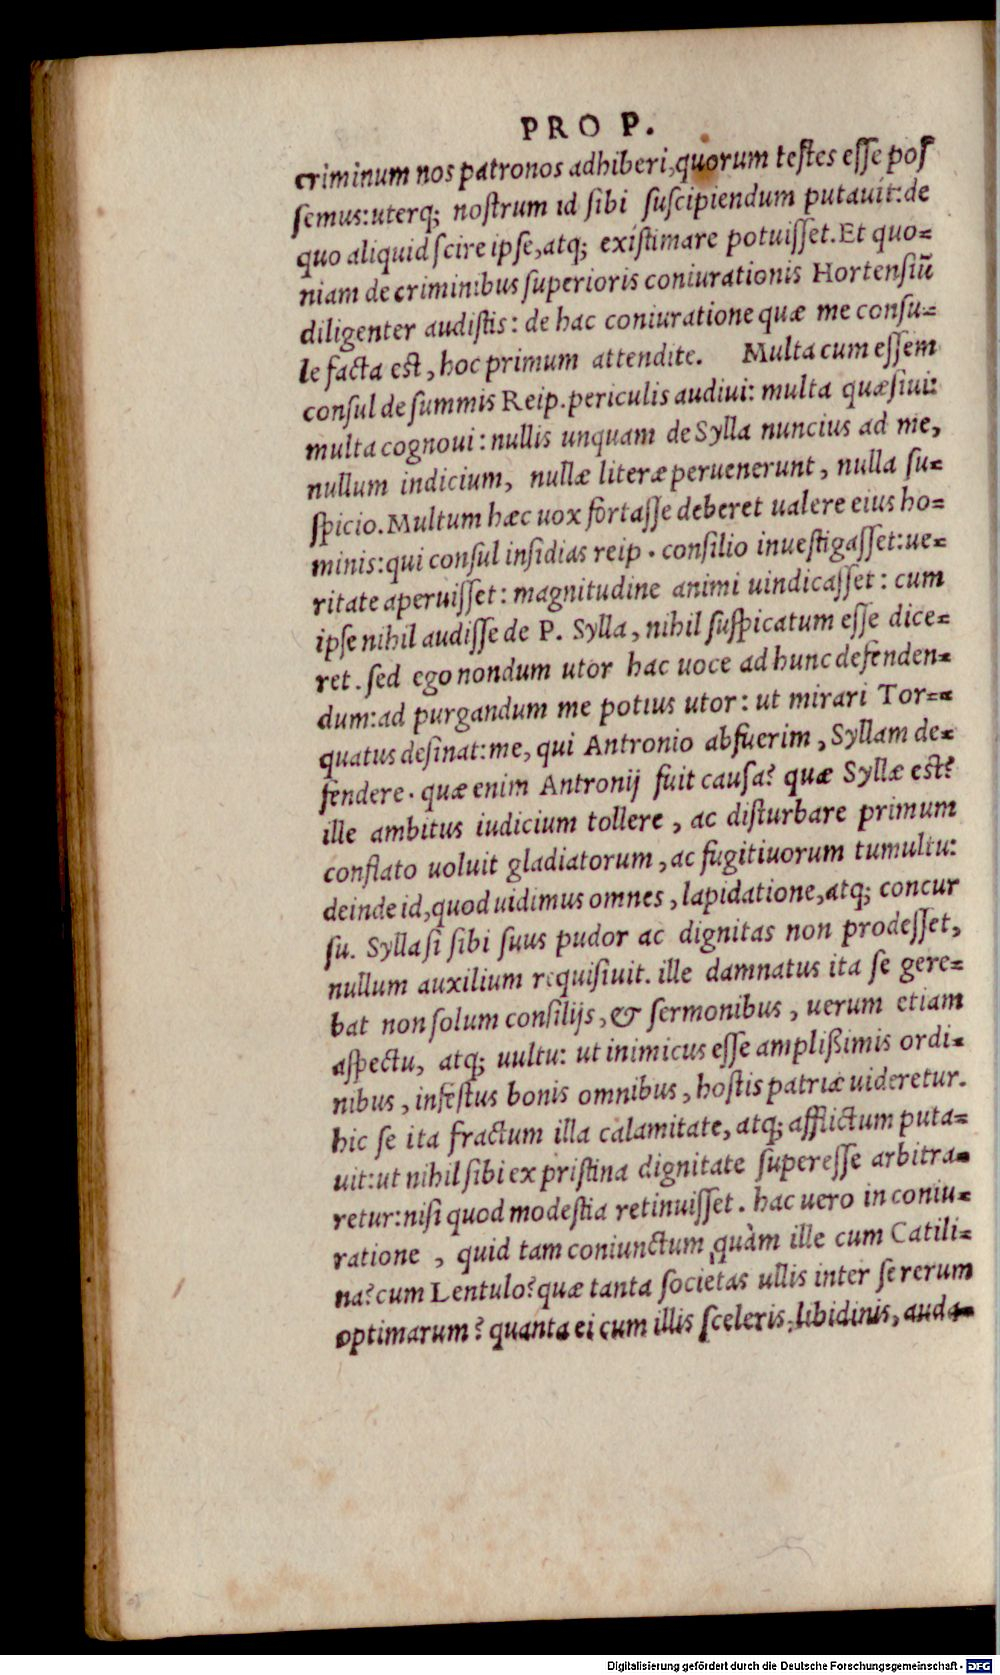 PRO P.
criminum nos patronos adhiberi, quorum testes esse pos
semus: uterq; nostrum id sibi suscipiendum putauit: de
quo aliquid scire ipse, atq; existimare potuisset. Et quo=
niam de criminibus superioris coniurationis Hortensiũ
diligenter audistis: de hac coniuratione quæ me consu=
le facta est, hoc primum attendite. Multa cum essem
consul de summis Reip. periculis audiui: multa quæsiui:
multa cognoui: nullis unquam de Sylla nuncius ad me,
nullum indicium, nullæ literæ peruenerunt, nulla su=
spicio. Multum hæc uox fortasse deberet ualere eius ho=
minis: qui consul insidias reip. consilio inuestigasset: ue=
ritate aperuisset: magnitudine animi uindicasset: cum
ipse nihil audisse de P. Sylla, nihil suspicatum esse dice=
ret. sed ego nondum utor hac uoce ad hunc defenden=
dum: ad purgandum me potius utor: ut mirari Tor=
quatus desinat: me, qui Antronio abfuerim, Syllam de=
fendere. quæ enim Antronij fuit causa? quæ Syllæ est?
ille ambitus iudicium tollere, ac disturbare primum
conflato uoluit gladiatorum, ac fugitiuorum tumultu:
deinde id, quod uidimus omnes, lapidatione, atq; concur
su. Sylla si sibi suus pudor ac dignitas non prodesset,
nullum auxilium requisiuit. ille damnatus ita se gere=
bat non solum consilijs, & sermonibus, uerum etiam
aspectu, atq; uultu: ut inimicus esse amplißimis ordi=
nibus, infestus bonis omnibus, hostis patriæ uideretur.
hic se ita fractum illa calamitate, atq; afflictum puta=
uit: ut nihil sibi ex pristina dignitate superesse arbitra=
retur: nisi quod modestia retinuisset. hac uero in coniu=
ratione, quid tam coniunctum quàm ille cum Catili=
na? cum Lentulo? quæ tanta societas ullis inter se rerum
optimarum? quanta ei cum illis sceleris, libidinis, auda=
Digitalisierung gefördert durch die Deutsche Forschungsgemeinschaft - DFG